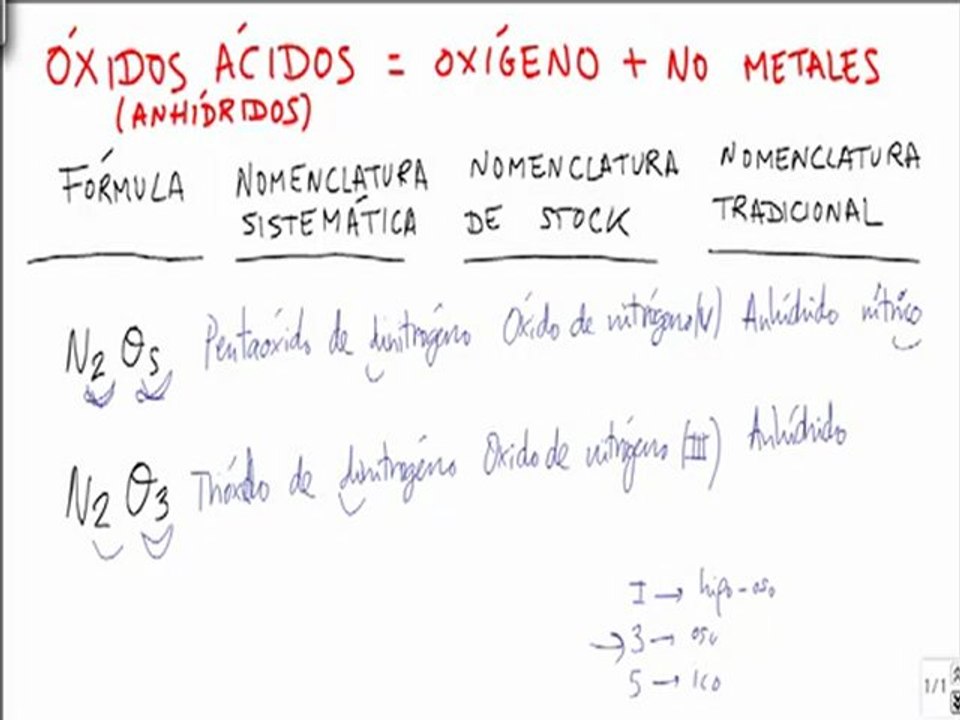 ÓXIDOS ÁCIDOS = OXÍGENO + NO METALES
(ANHÍDRIDOS)
FÓRMULA NOMENCLATURA SISTEMÁTICA NOMENCLATURA DE STOCK NOMENCLATURA TRADICIONAL
N2O5 Pentaóxido de dinitrógeno Óxido de nitrógeno(V) Anhídrido nítrico
N2O3 Trióxido de dinitrógeno Oxido de nitrógeno (III) Anhídrido
I → hipo-oso
→ 3 → oso
5 → ico
1/1